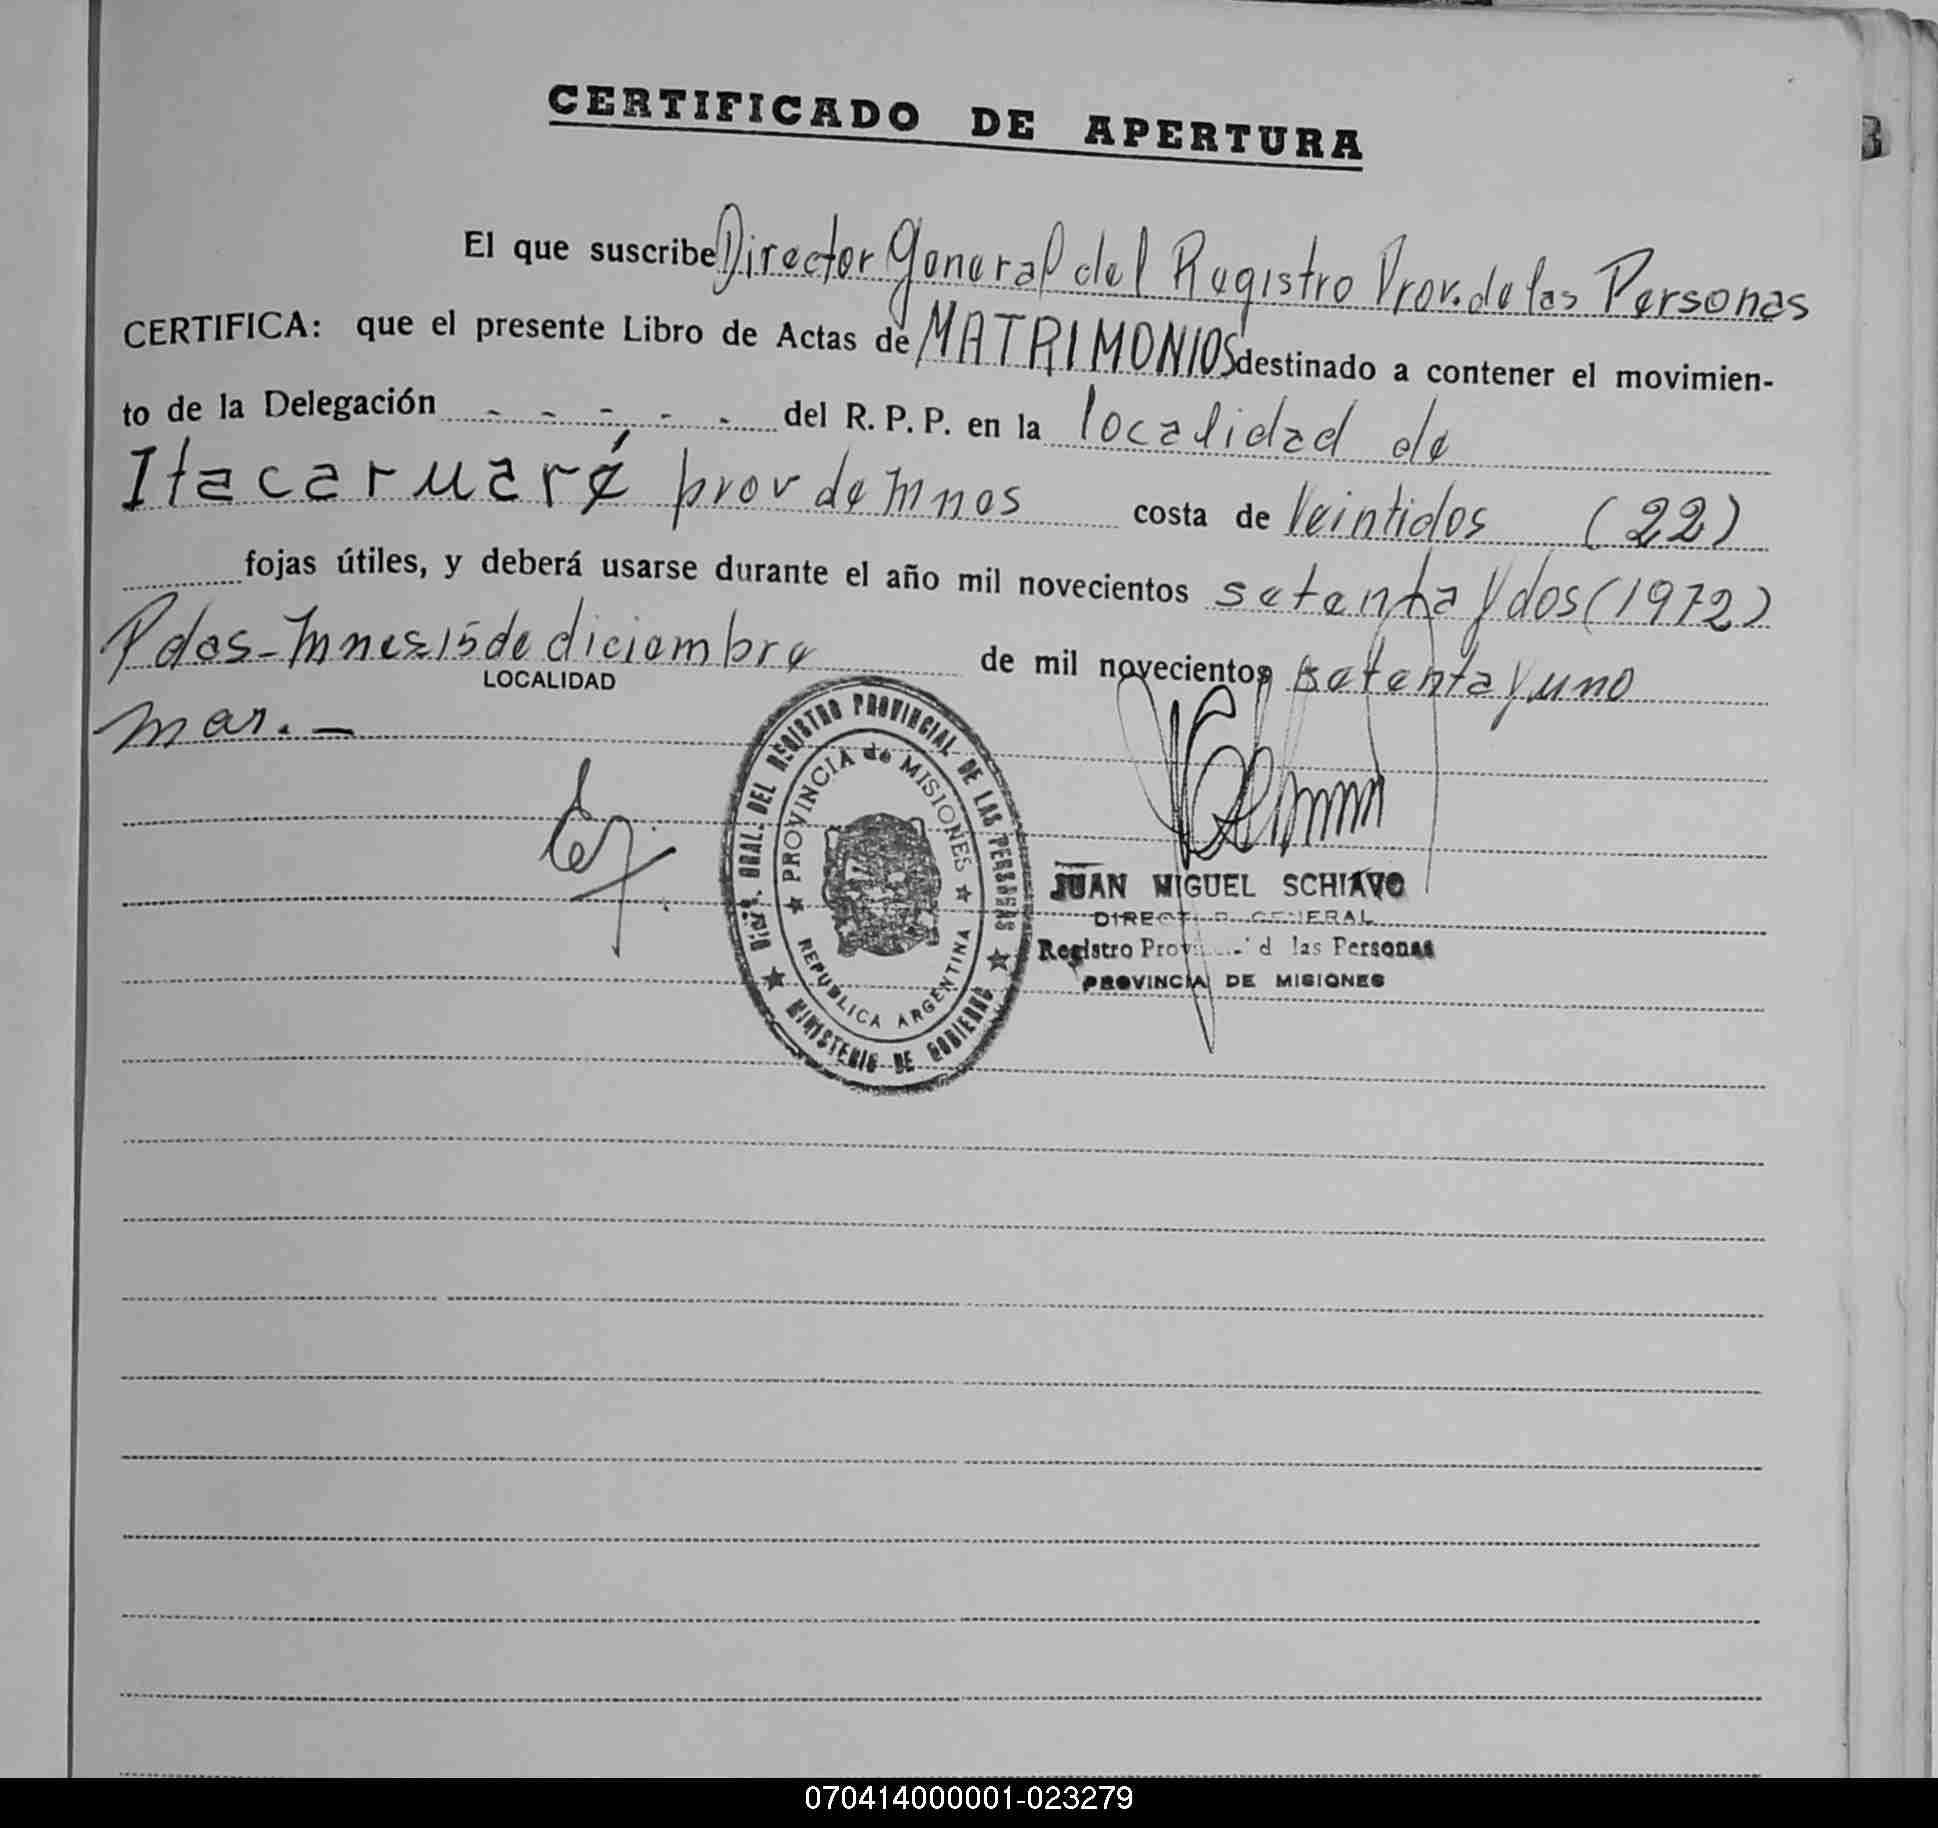 CERTIFICADO DE APERTURA
El que suscribe Director General del Registro Prov. de las Personas
CERTIFICA: que el presente Libro de Actas de MATRIMONIOS destinado a contener el movimien-
to de la Delegación - - - - - del R. P. P. en la localidad de
Itacaruaré prov de Mnes costa de Veintidos (22)
fojas útiles, y deberá usarse durante el año mil novecientos setenta y dos (1972)
Pdas - Mnes 15 de diciembre de mil novecientos setenta y uno
LOCALIDAD
mar. -
GRAL. DEL REGISTRO PROVINCIAL DE LAS PERSONAS
PROVINCIA de MISIONES
REPUBLICA ARGENTINA
MINISTERIO DE GOBIERNO
JUAN MIGUEL SCHIAVO
DIRECTOR GENERAL
Registro Prov las Personas
PROVINCIA DE MISIONES
070414000001-023279